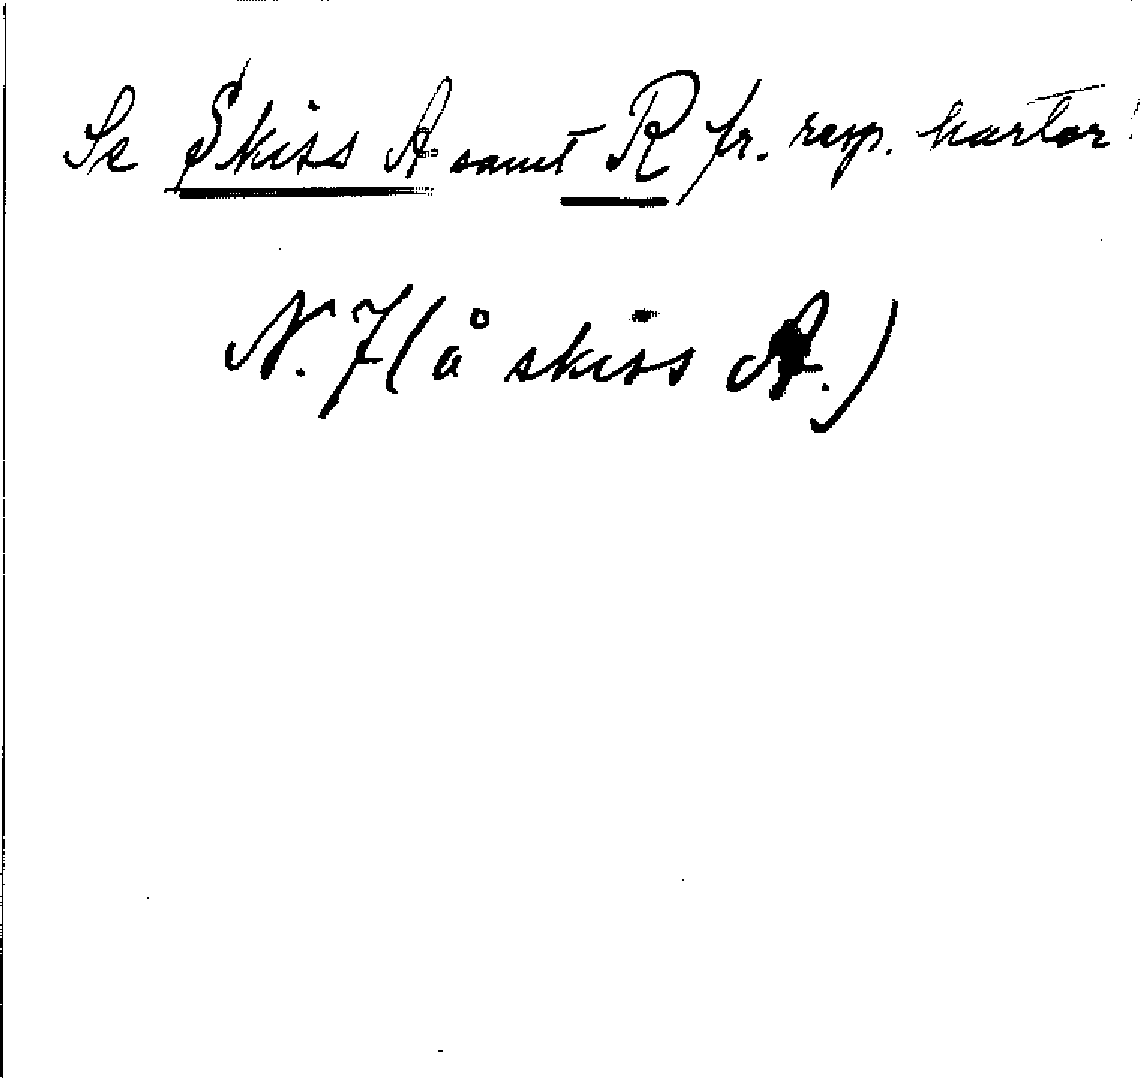 Se Skiss A samt R fr. resp. kartor!
N. 7 (å skiss A.)